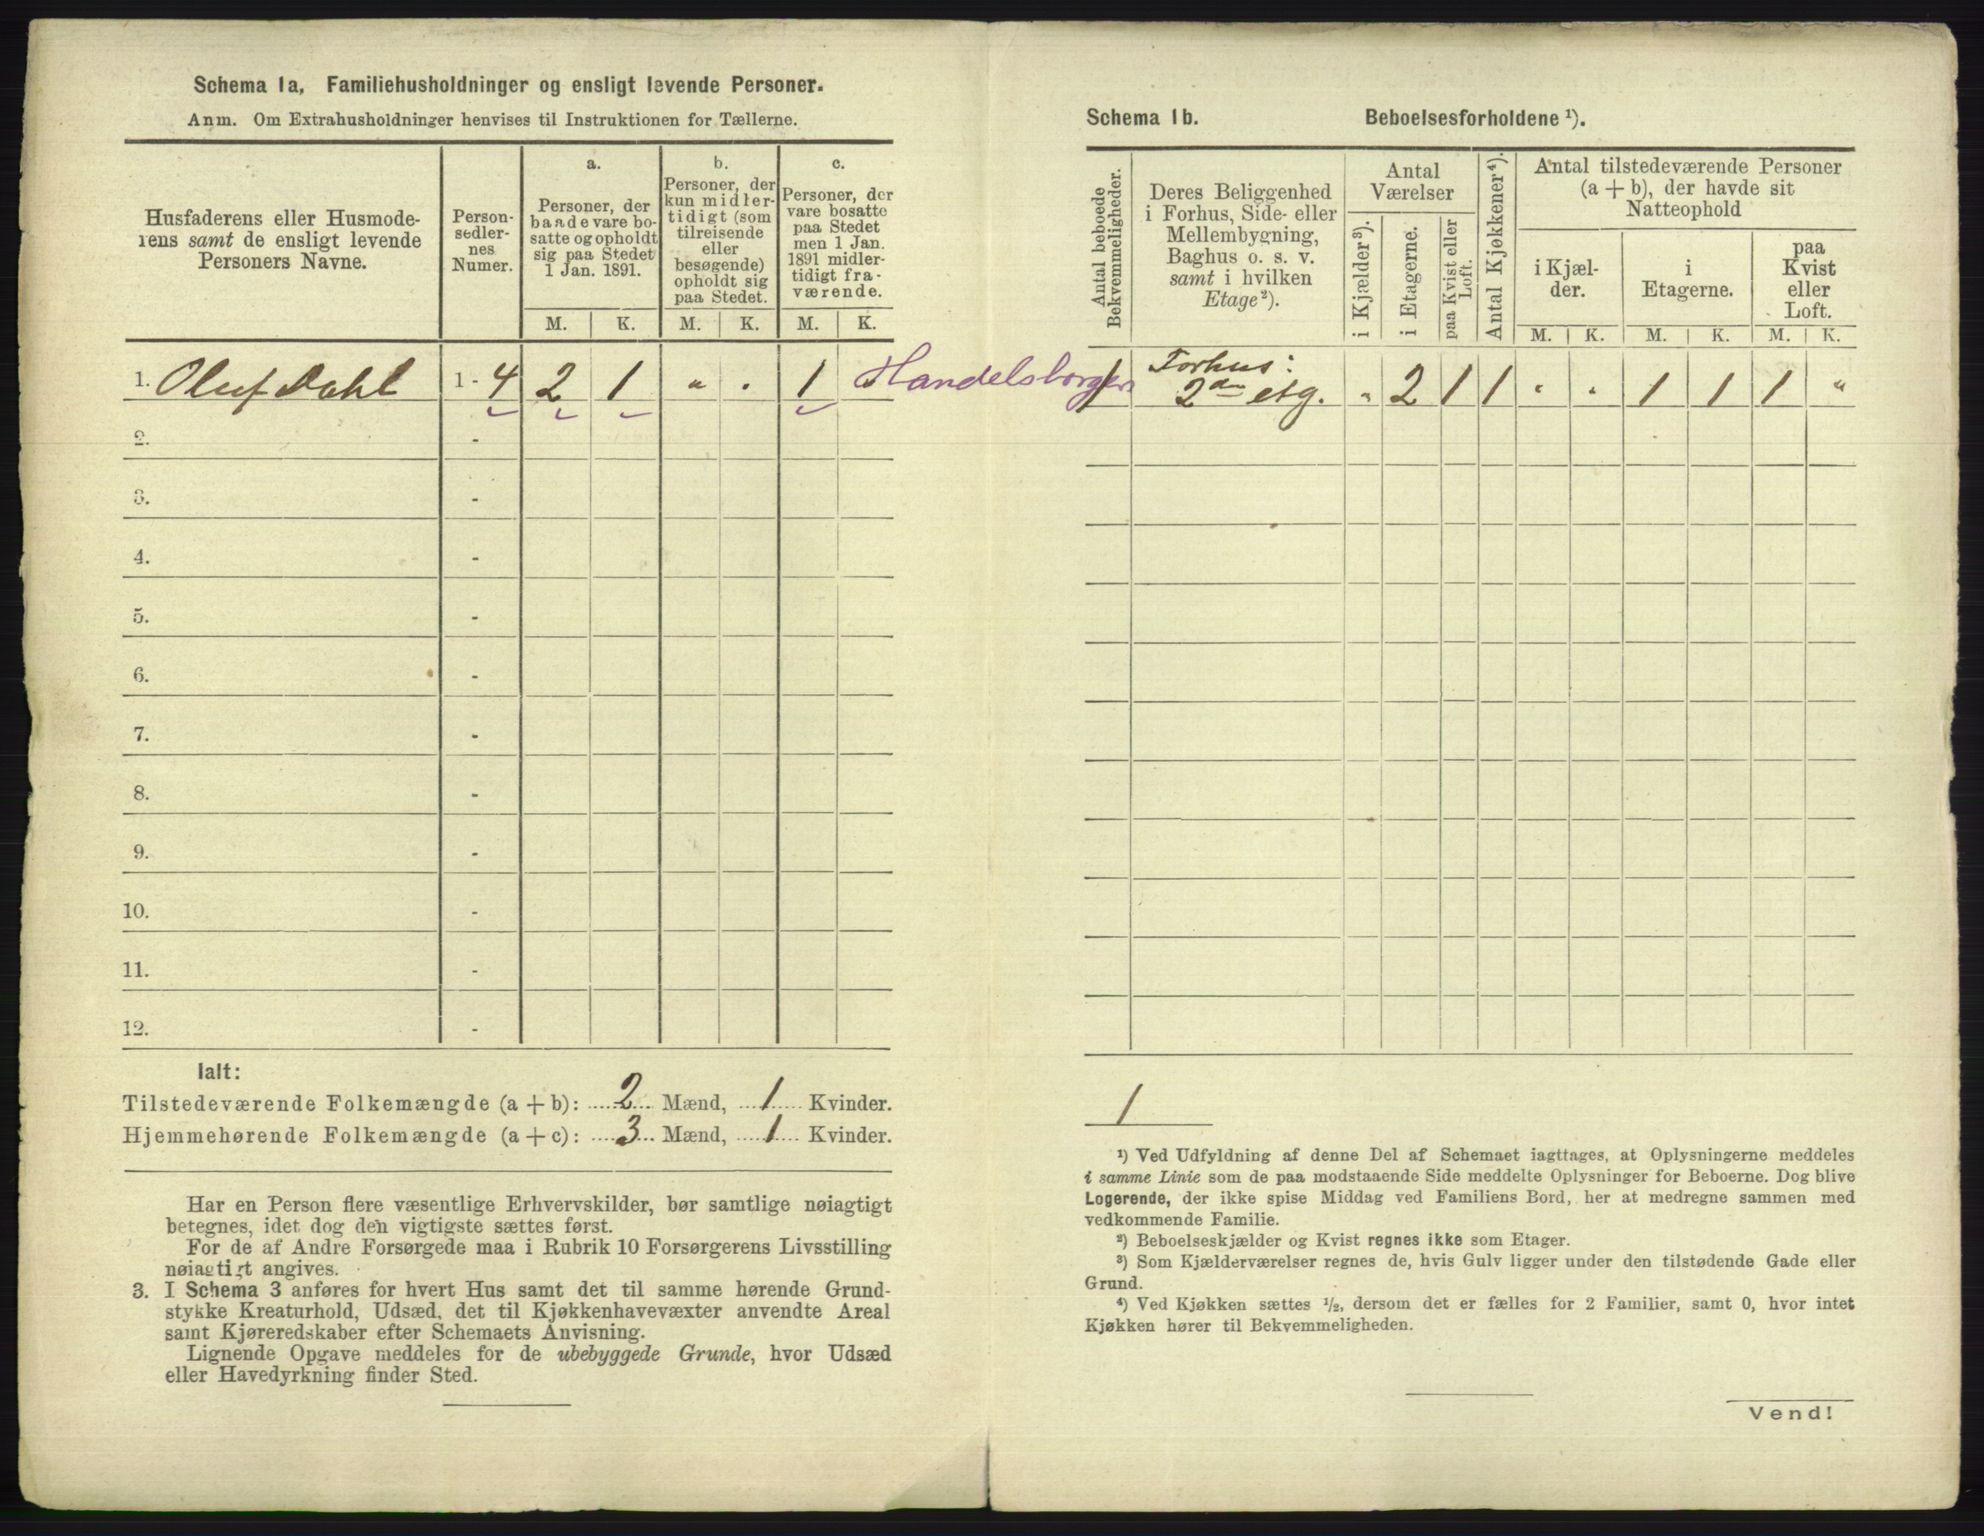 Schema 1a, Familiehusholdninger og ensligt levende Personer.
Anm. Om Extrahusholdninger henvises til Instruktionen for Tællerne.
Husfaderens eller Husmode-
rens samt de ensligt levende
Personers Navne.
Person-
sedler-
nes
Numer.
a.
Personer, der
baade vare bo-
satte og opholdt
sig paa Stedet
1 Jan. 1891.
M. K.
b.
Personer, der
kun midler-
tidigt (som
tilreisende
eller
besøgende)
opholdt sig
paa Stedet.
M. K.
c.
Personer, der
vare bosatte
paa Stedet
men 1 Jan.
1891 midler-
tidigt fra-
værende.
M. K.
1. Oluf Dahl 1 - 4 2 1 " . 1 Handelsborger
2. -
3. -
4. -
5. -
6. -
7. -
8. -
9. -
10. -
11. -
12. -
Ialt:
Tilstedeværende Folkemængde (a + b): 2 Mænd, 1 Kvinder.
Hjemmehørende Folkemængde (a + c): 3 Mænd, 1 Kvinder.
Har en Person flere væsentlige Erhvervskilder, bør samtlige nøiagtigt
betegnes, idet dog den vigtigste sættes først.
For de af Andre Forsørgede maa i Rubrik 10 Forsørgerens Livsstilling
nøiagtigt angives.
3. I Schema 3 anføres for hvert Hus samt det til samme hørende Grund-
stykke Kreaturhold, Udsæd, det til Kjøkkenhavevæxter anvendte Areal
samt Kjøreredskaber efter Schemaets Anvisning.
Lignende Opgave meddeles for de ubebyggede Grunde, hvor Udsæd
eller Havedyrkning finder Sted.
Schema 1b. Beboelsesforholdene ¹).
Antal beboede
Bekvemmeligheder.
Deres Beliggenhed
i Forhus, Side- eller
Mellembygning,
Baghus o. s. v.
samt i hvilken
Etage ²).
Antal
Værelser
i Kjælder ³).
i Etagerne.
paa Kvist eller
Loft.
Antal Kjøkkener ⁴).
Antal tilstedeværende Personer
(a + b), der havde sit
Natteophold
i Kjæl-
der.
i
Etagerne.
paa
Kvist
eller
Loft.
M. K. M. K. M. K.
1 Forhus:
2den etg. " 2 1 1 . . 1 1 1 "
1
¹) Ved Udfyldning af denne Del af Schemaet iagttages, at Oplysningerne meddeles
i samme Linie som de paa modstaaende Side meddelte Oplysninger for Beboerne. Dog blive
Logerende, der ikke spise Middag ved Familiens Bord, her at medregne sammen med
vedkommende Familie.
²) Beboelseskjælder og Kvist regnes ikke som Etager.
³) Som Kjælderværelser regnes de, hvis Gulv ligger under den tilstødende Gade eller
Grund.
⁴) Ved Kjøkken sættes ½, dersom det er fælles for 2 Familier, samt 0, hvor intet
Kjøkken hører til Bekvemmeligheden.
Vend!